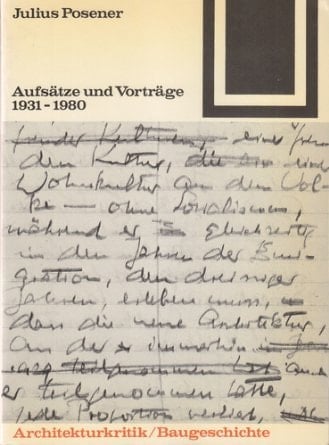 Julius Posener
Aufsätze und Vorträge
1931-1980
eine
der Kultur, die eine
Wohnkultur aus dem Vol-
ke — ohne Sozialismus,
während er gleichzeitig
in den Jahren der Emi-
gration, den dreissiger
Jahren, erleben muss,
dass die neue Architektur,
an der er immerhin
teilgenommen hat
er teilgenommen hatte,
jede Proportion verliert,
Architekturkritik/Baugeschichte